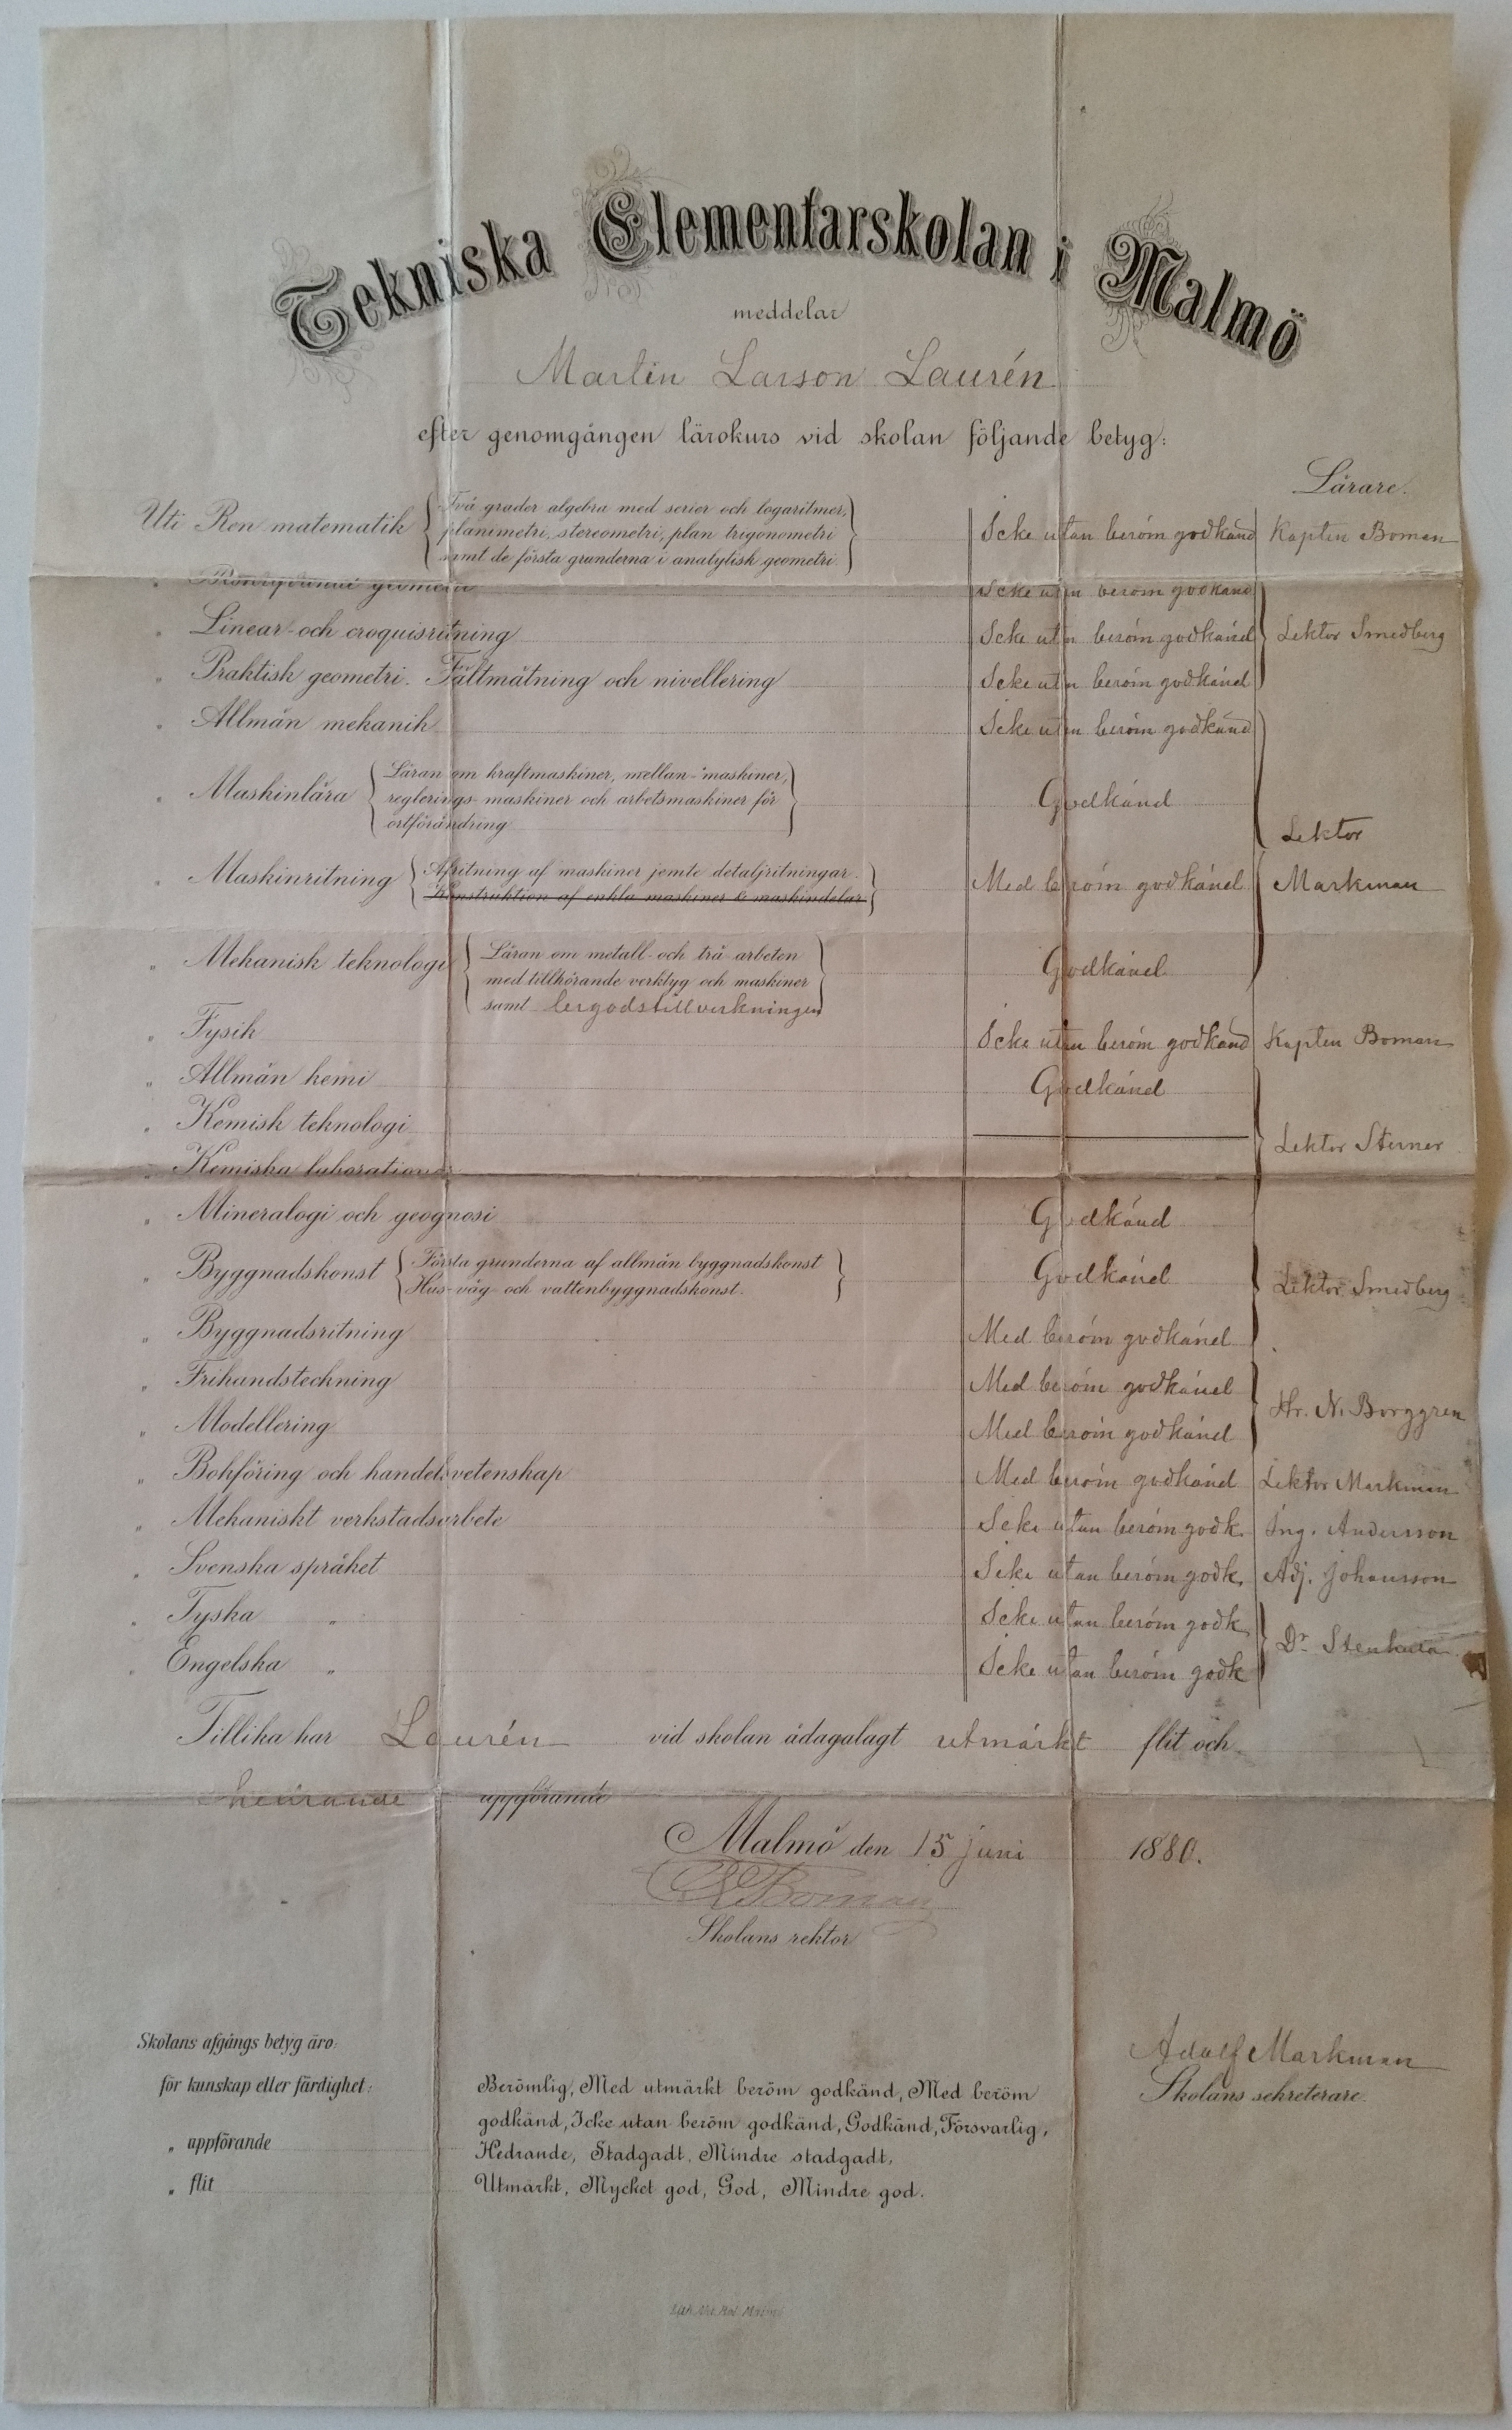 Tekniska Elementarskolan i Malmö
meddelar
Martin Larson Laurén
efter genomgången lärokurs vid skolan följande betyg:
Lärare.
Uti Ren matematik { Två grader algebra med serier och logaritmer, planimetri, stereometri, plan trigonometri samt de första grunderna i analytisk geometri. } Icke utan beröm godkänd Kapten Boman
" geometri Icke utan beröm godkänd
" Linear- och croquisritning Icke utan beröm godkänd Lektor Smedberg
" Praktisk geometri. Fältmätning och nivellering Icke utan beröm godkänd
" Allmän mekanik Icke utan beröm godkänd
" Maskinlära { Läran om kraftmaskiner, mellan-maskiner, reglerings-maskiner och arbetsmaskiner för ortförändring } Godkänd
Lektor
" Maskinritning { Afritning af maskiner jemte detaljritningar. Konstruktion af enkla maskiner & maskindelar } Med beröm godkänd Markman
" Mekanisk teknologi { Läran om metall- och trä-arbeten med tillhörande verktyg och maskiner samt lergodstillverkningen } Godkänd
" Fysik Icke utan beröm godkänd Kapten Boman
" Allmän kemi Godkänd
" Kemisk teknologi Lektor Sterner
" Kemiska laborationer
" Mineralogi och geognosi Godkänd
" Byggnadskonst { Första grunderna af allmän byggnadskonst Hus- väg- och vattenbyggnadskonst. } Godkänd Lektor Smedberg
" Byggnadsritning Med beröm godkänd
" Frihandsteckning Med beröm godkänd
Hr. N. Borggren
" Modellering Med beröm godkänd
" Bokföring och handelsvetenskap Med beröm godkänd Lektor Markman
" Mekaniskt verkstadsarbete Icke utan beröm godk. Ing. Andersson
" Svenska språket Icke utan beröm godk. Adj. Johansson
" Tyska " Icke utan beröm godk.
Dr
" Engelska " Icke utan beröm godk
Tillika har Laurén vid skolan ådagalagt utmärkt flit och
hedrande uppförande
Malmö den 15 juni 1880.
Boman
Skolans rektor
Adolf Markman
Skolans sekreterare.
Skolans afgångs betyg äro:
för kunskap eller färdighet: Berömlig, Med utmärkt beröm godkänd, Med beröm
godkänd, Icke utan beröm godkänd, Godkänd, Försvarlig,
" uppförande Hedrande, Stadgadt, Mindre stadgadt,
" flit Utmärkt, Mycket god, God, Mindre god.